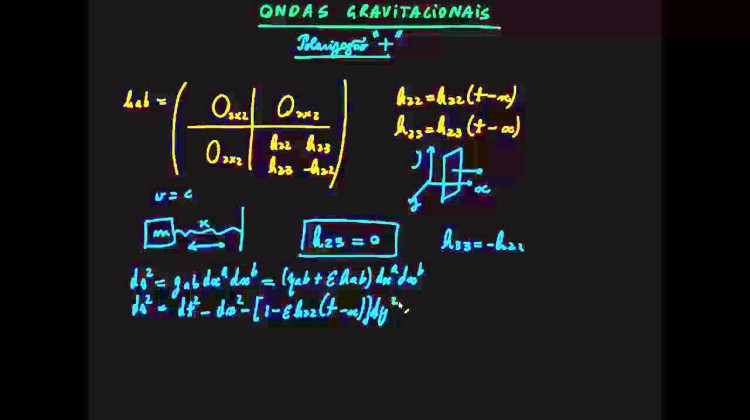 ONDAS GRAVITACIONAIS
Polarização "+"
hab = ( O2x2 | O2x2
O2x2 | h22 h23
h23 -h22 )
h22 = h22 (t-x)
h23 = h23 (t-x)
y
x
z
v = c
m
k
h23 = 0
h33 = -h22
ds² = gab dxᵃ dxᵇ = (ηab + εhab) dxᵃ dxᵇ
ds² = dt² - dx² - [1 - εh22 (t-x)] dy²